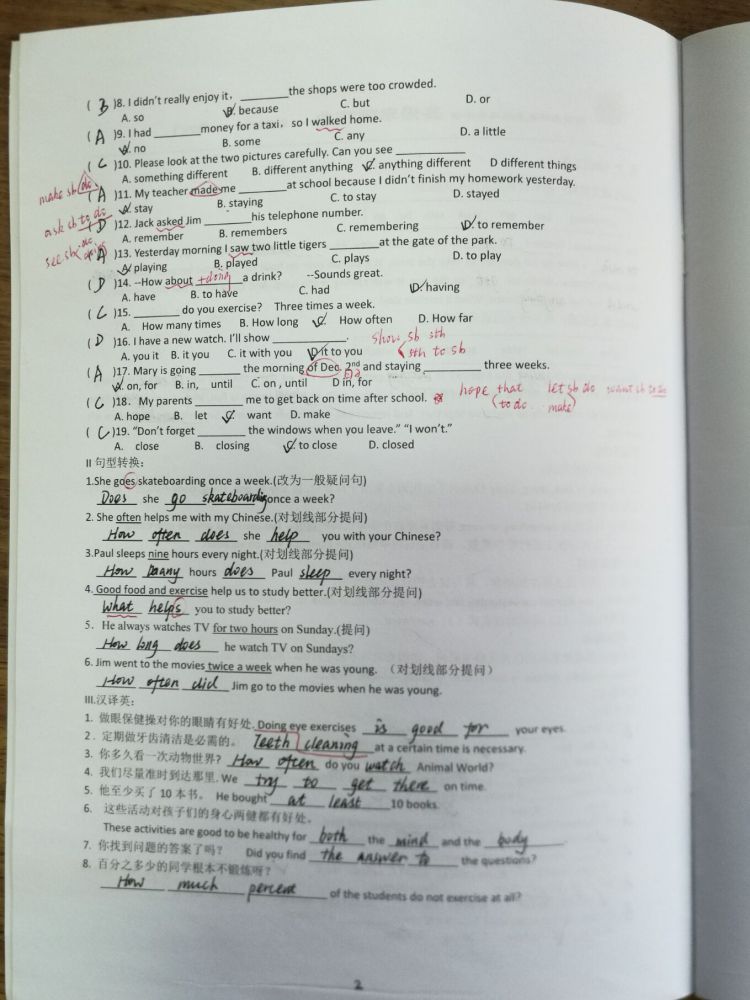 ( B )8. I didn't really enjoy it, ________the shops were too crowded.
A. so B. because C. but D. or
( A )9. I had ________money for a taxi, so I walked home.
A. no B. some C. any D. a little
( C )10. Please look at the two pictures carefully. Can you see ____________
A. something different B. different anything C. anything different D different things
make sb do
( A )11. My teacher made me ________at school because I didn't finish my homework yesterday.
A. stay B. staying C. to stay D. stayed
ask sb to do
( D )12. Jack asked Jim ________his telephone number.
A. remember B. remembers C. remembering D. to remember
see sb do doing
( A )13. Yesterday morning I saw two little tigers ________at the gate of the park.
A. playing B. played C. plays D. to play
( D )14. --How about +doing a drink? --Sounds great.
A. have B. to have C. had D. having
( C )15. ________ do you exercise? Three times a week.
A. How many times B. How long C. How often D. How far
( D )16. I have a new watch. I'll show ____________.
show sb sth
A. you it B. it you C. it with you D it to you
sth to sb
( A )17. Mary is going _______ the morning of Dec. 2nd and staying _________ three weeks.
A. on, for B. in, until C. on , until D in, for
( C )18. My parents ________ me to get back on time after school.
hope that let sb do want sb to do
A. hope B. let C. want D. make
to do make
( C )19. "Don't forget ________ the windows when you leave." "I won't."
A. close B. closing C. to close D. closed
II 句型转换:
1.She goes skateboarding once a week.(改为一般疑问句)
Does she go skateboarding once a week?
2. She often helps me with my Chinese.(对划线部分提问)
How often does she help you with your Chinese?
3.Paul sleeps nine hours every night.(对划线部分提问)
How many hours does Paul sleep every night?
4. Good food and exercise help us to study better.(对划线部分提问)
what helps you to study better?
5. He always watches TV for two hours on Sunday.(提问)
How long does he watch TV on Sundays?
6. Jim went to the movies twice a week when he was young. (对划线部分提问)
How often did Jim go to the movies when he was young.
III.汉译英:
1. 做眼保健操对你的眼睛有好处. Doing eye exercises is good for your eyes.
2. 定期做牙齿清洁是必需的。 Teeth cleaning at a certain time is necessary.
3. 你多久看一次动物世界? How often do you watch Animal World?
4. 我们尽量准时到达那里. We try to get there on time.
5. 他至少买了 10 本书。 He bought at least 10 books.
6. 这些活动对孩子们的身心两健都有好处。
These activities are good to be healthy for both the mind and the body.
7. 你找到问题的答案了吗? Did you find the answer to the questions?
8. 百分之多少的同学根本不锻炼呀?
How much percent of the students do not exercise at all?
2